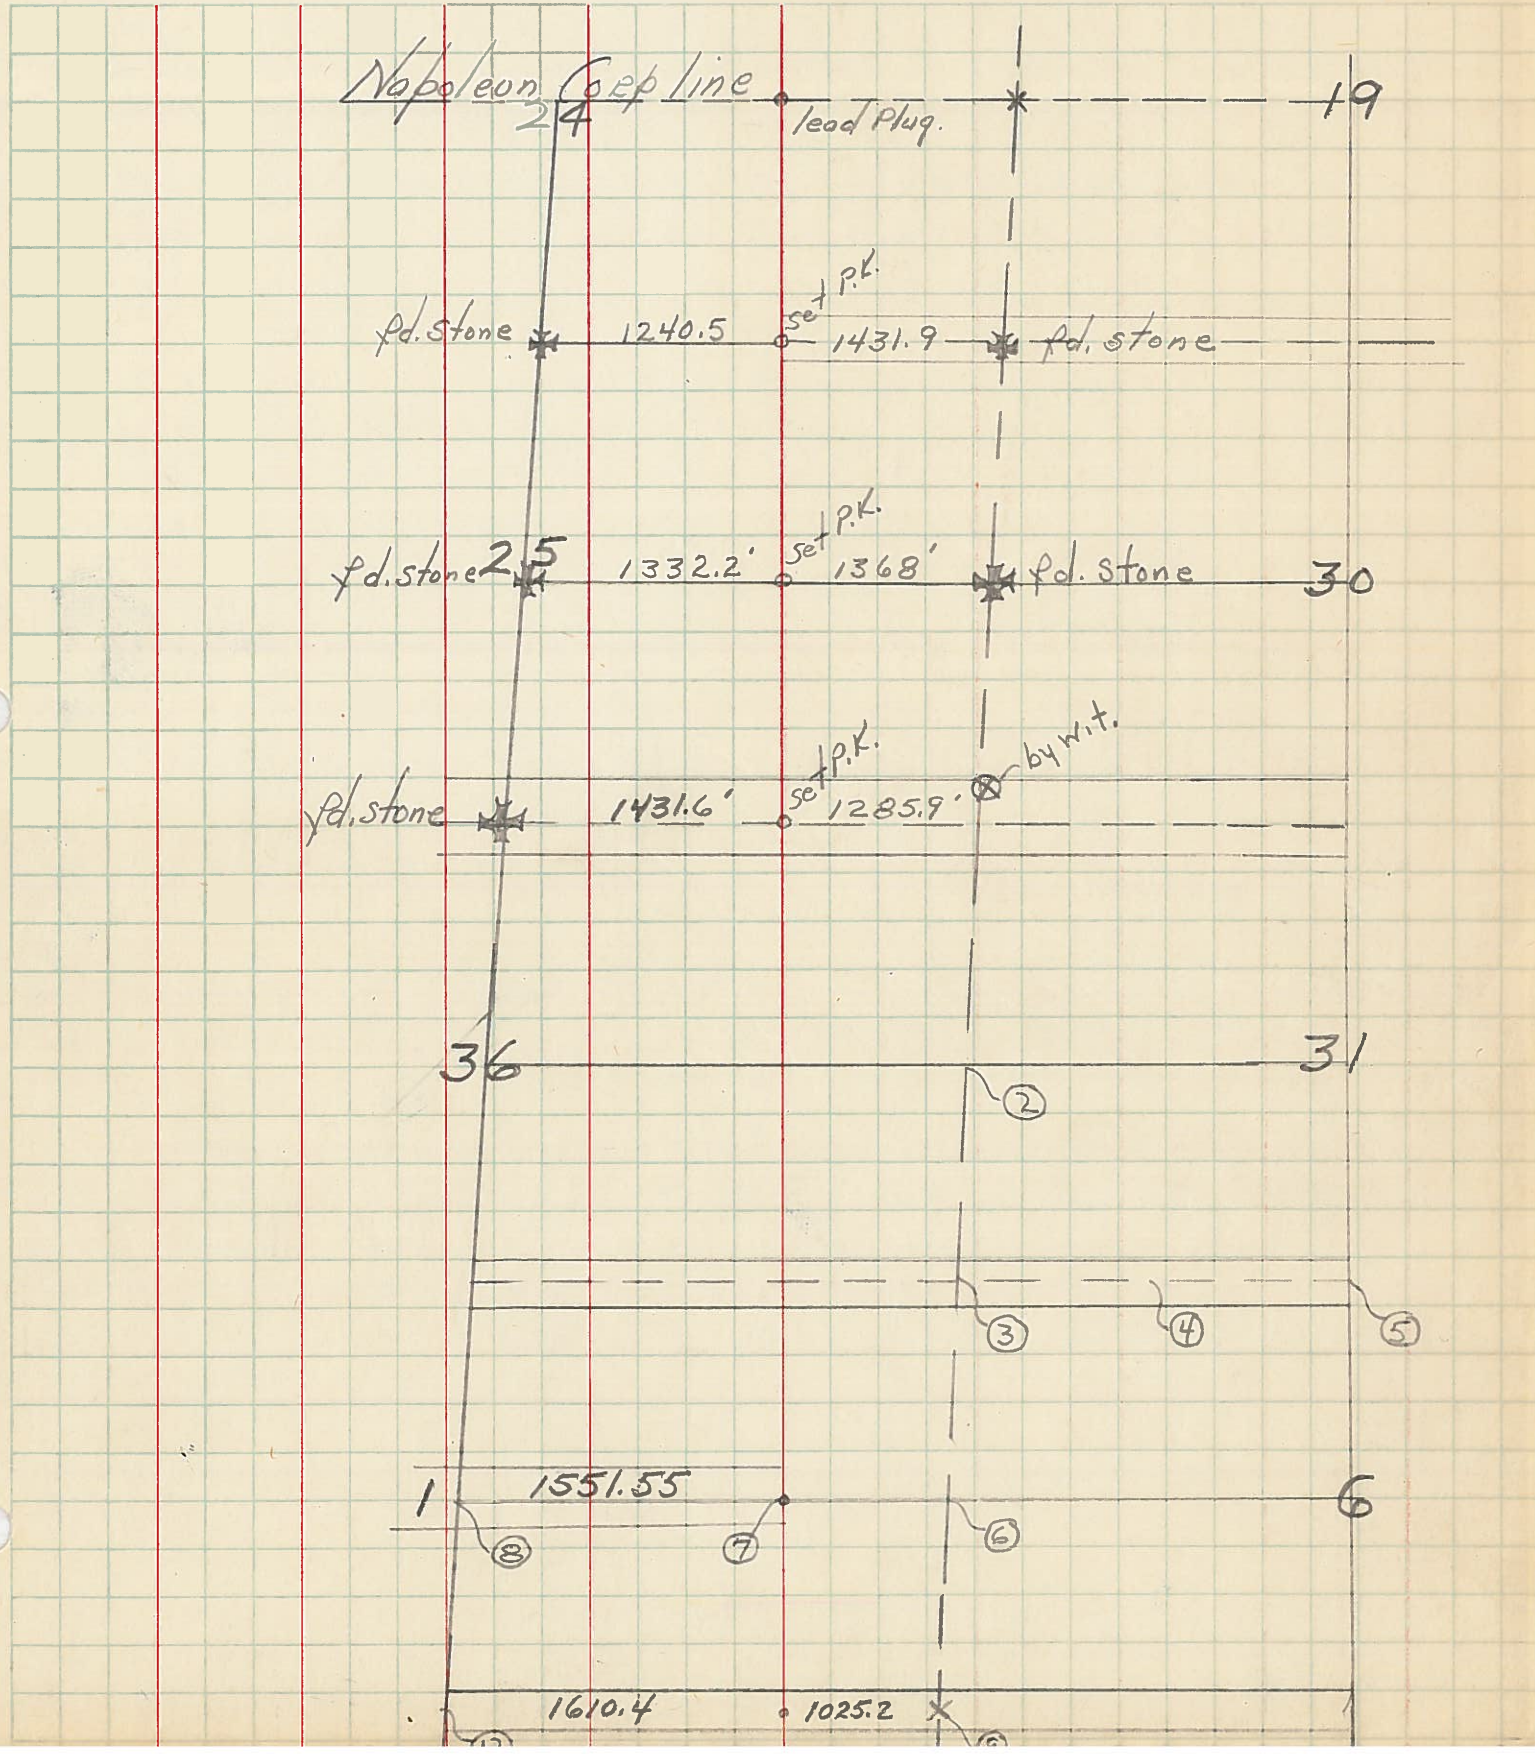 Napoleon Corp line
24
lead Plug.
19
fd. stone
1240.5
set P.K.
1431.9
fd. stone
fd. stone
25
1332.2'
set P.K.
1368'
fd. stone
30
by wit.
fd. stone
1431.6'
set P.K.
1285.9'
36
31
2
3
4
5
1
1551.55
6
8
7
6
1610.4
1025.2